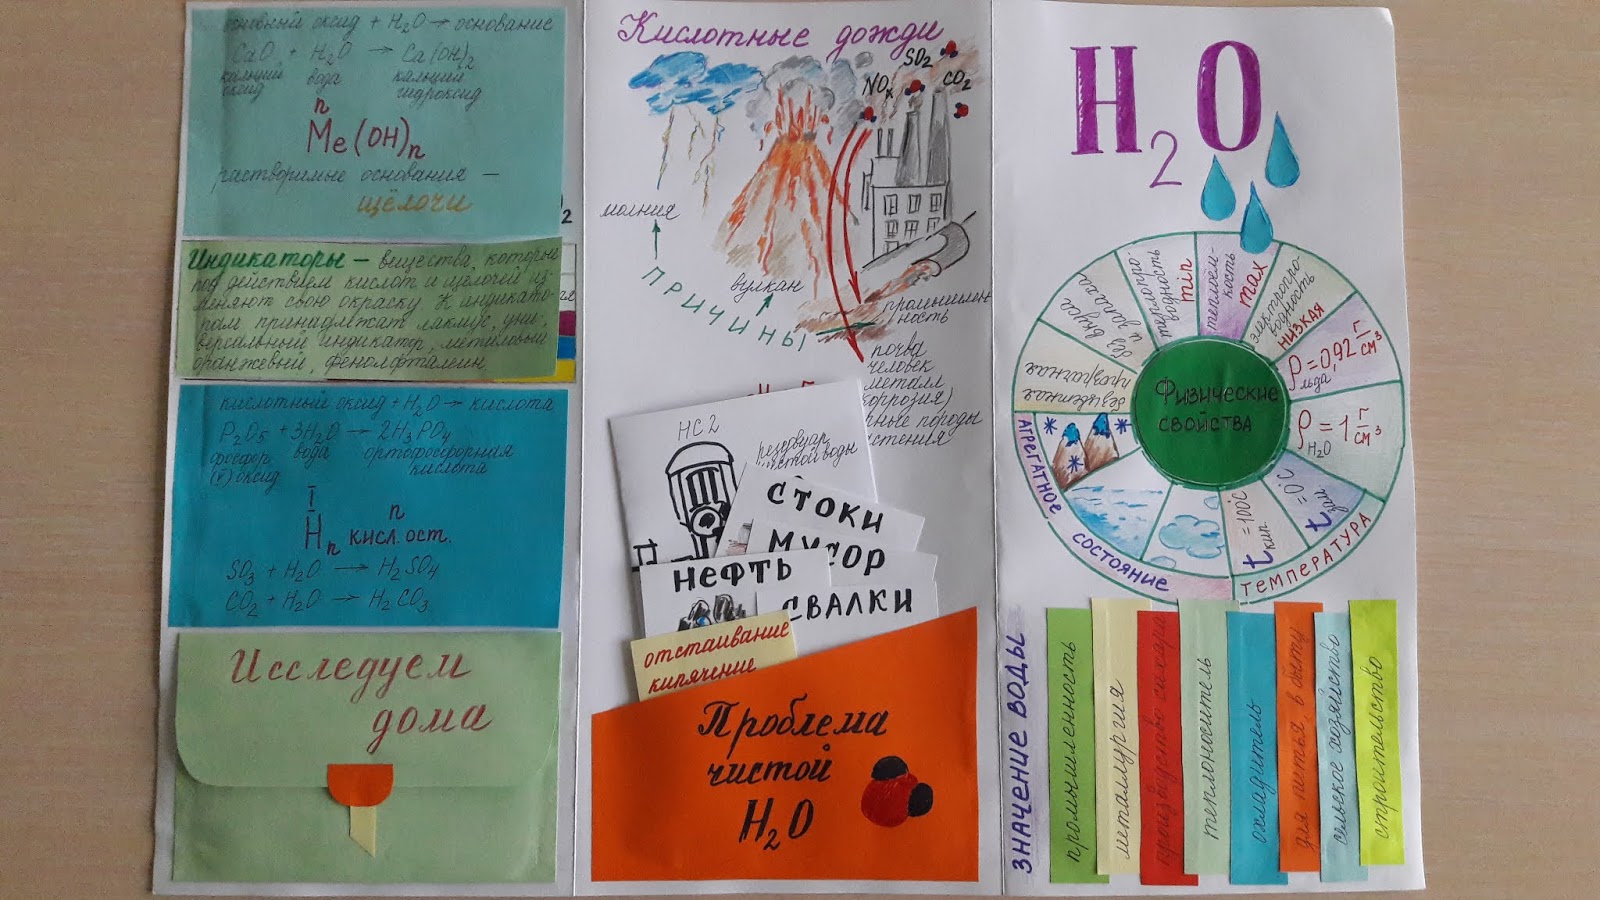 основный оксид + H₂O → основание
CaO + H₂O → Ca(OH)₂
кальций вода кальций
оксид гидроксид
n
Me(OH)n
растворимые основания —
щёлочи
Индикаторы — вещества, которые
под действием кислот и щелочей из-
меняют свою окраску. К индикато-
рам принадлежат лакмус, уни-
версальный индикатор, метиловый
оранжевый, фенолфталеин.
кислотный оксид + H₂O → кислота
P₂O₅ + 3H₂O → 2H₃PO₄
фосфор вода ортофосфорная
(V) оксид кислота
I n
Hn кисл. ост.
SO₃ + H₂O → H₂SO₄
CO₂ + H₂O → H₂CO₃
Исследуем
дома
Кислотные дожди
SO₂
NOₓ CO₂
молния
вулкан
ПРИЧИНЫ
промышлен
ность
почва
человек
металл
(коррозия)
рные породы
стения
НС 2
резервуар
чистой воды
СТОКИ
МУСОР
НЕФТЬ
СВАЛКИ
отстаивание
кипячение
Проблема
чистой
H₂O
H₂O
Физические
свойства
бесцветная
прозрачная
без вкуса
и запаха
теплопро-
водность
min
теплоём-
кость
max
электропро-
водность
низкая
ρ льда = 0,92 г/см³
ρ H₂O = 1 г/см³
t зам = 0°C
t кип = 100°C
ТЕМПЕРАТУРА
АГРЕГАТНОЕ СОСТОЯНИЕ
ЗНАЧЕНИЕ ВОДЫ
промышленность
металлургия
производство сахара
теплоноситель
охладитель
для питья, в быту
сельское хозяйство
строительство